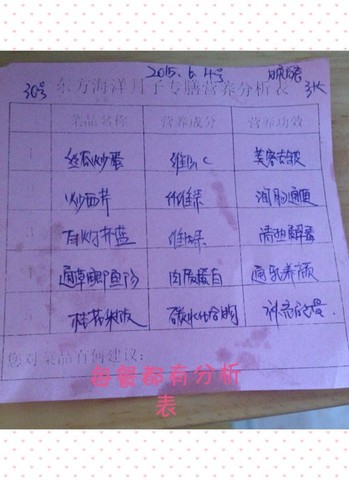 2015.6.4号
30号 东方海洋月子专膳营养分析表
菜品名称 营养成分 营养功效
1 丝瓜炒蛋 美容去皱
2 炒西芹 纤维素 润肠通便
3 白灼芥蓝 维生素 清热解毒
4 通草鲫鱼汤 肉质蛋白 通乳养颜
5 碳水化合物
您对菜品有何建议：
每餐都有分析
表